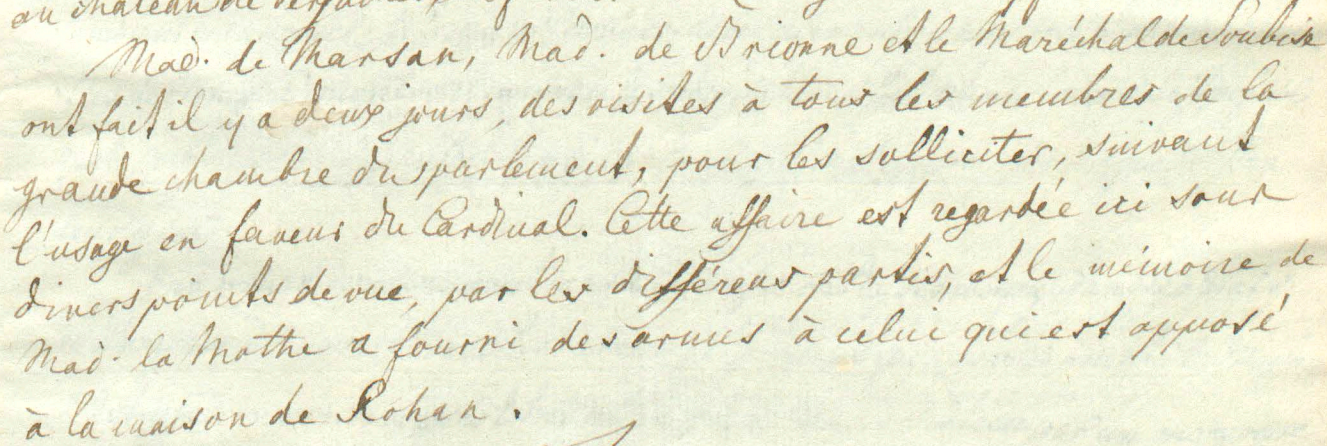 au château de
Mad. de Marsan, Mad. de Brionne et le Maréchal de Soubise
ont fait il y a deux jours, des visites à tous les membres de la
grande chambre du parlement, pour les solliciter, suivant
l'usage en faveur du Cardinal. Cette affaire est regardée ici sous
divers points de vue, par les différens partis, et le mémoire de
Mad. la Mothe a fourni des armes à celui qui est opposé
à la maison de Rohan.